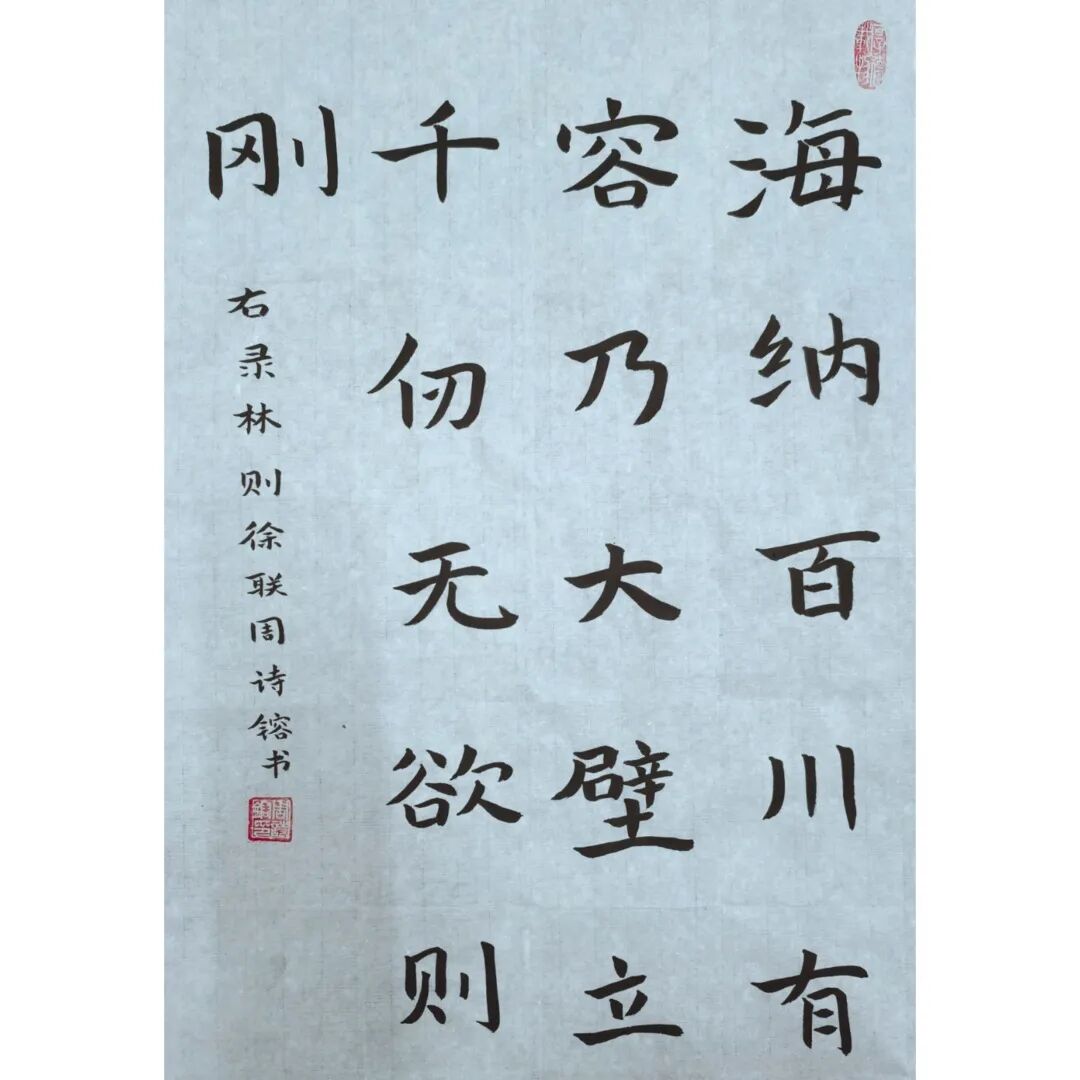 海纳百川有
容乃大壁立
千仞无欲则
刚
右录林则徐联周诗镕书